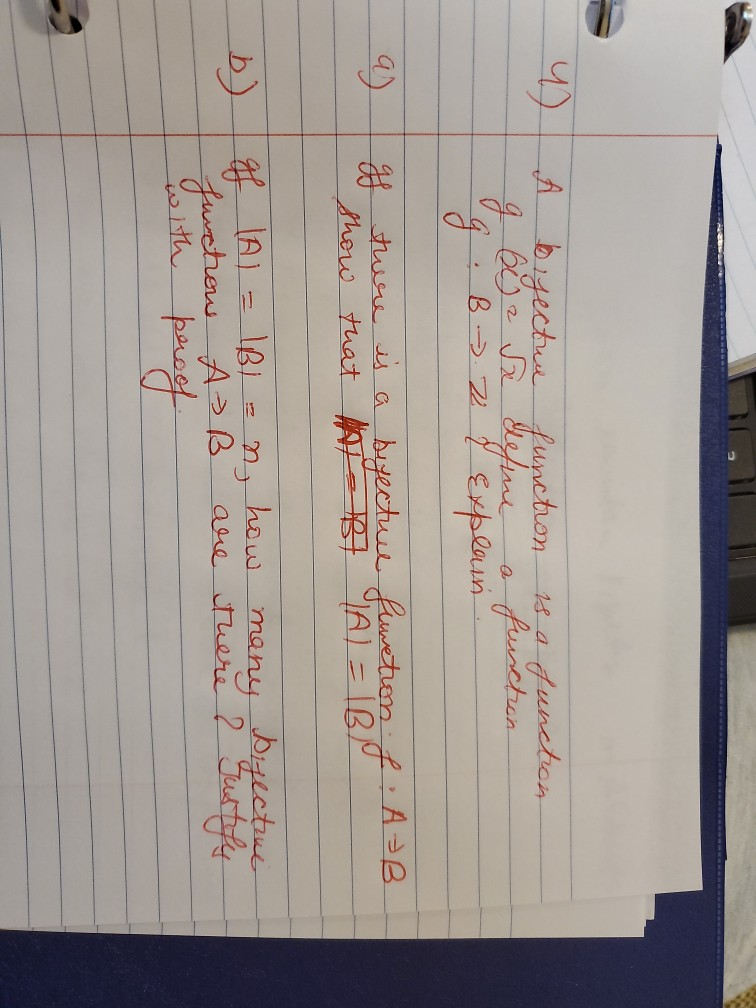 4) A bijective function is a function
g (x) = √x define a function
g : B → Z ? Explain.
a) If there is a bijective function f : A → B
show that |A| = |B| |A| = |B|
b) If |A| = |B| = n, how many bijective
functions A → B are there ? Justify
with proof.